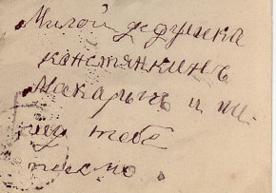 Милой дедушка
канстянкинъ
Макарычъ и пи-
шу тебе
писмо.